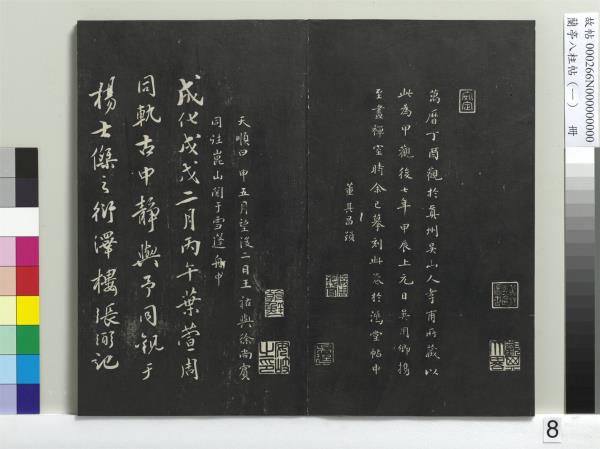 故帖 000266N000000000
蘭亭八柱帖(一) 冊
萬曆丁酉觀於真州吳山人孝甫所藏以
此為甲觀後七年甲辰上元日吳用卿攜
至畫禪室時余已摹刻此卷於鴻堂帖中
董其昌題
天順甲申五月望後二日王祐與徐尚賓
同往崑山閱于雪篷舟中
成化戊戌二月丙午葉萱周
同軌古中靜與予同觀于
楊士傑之衍澤樓張弼記
8